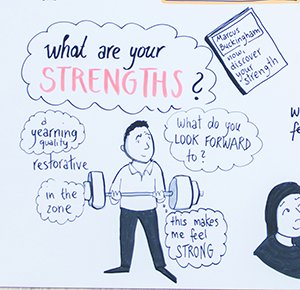 what are your
STRENGTHS?
Marcus
Buckingham
now,
discover
your
strength
a
yearning
quality
restorative
in the
zone
What do you
LOOK FORWARD
to?
this makes
me feel
STRONG